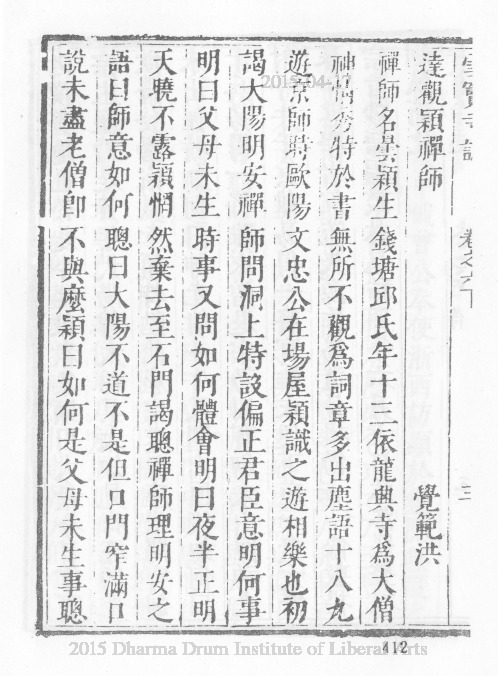 雪竇寺誌 卷之六下 三
達觀穎禪師 覺範洪
禪師名曇穎生錢塘邱氏年十三依龍興寺爲大僧
神情秀特於書無所不觀爲詞章多出塵語十八九
遊京師時歐陽文忠公在場屋穎識之遊相樂也初
謁大陽明安禪師問洞上特設偏正君臣意明何事
明曰父母未生時事又問如何體會明曰夜半正明
天曉不露穎惘然棄去至石門謁聰禪師理明安之
語曰師意如何聰曰大陽不道不是但口門窄滿口
說未盡老僧卽不與麼穎曰如何是父母未生事聰
412
2015-04-
2015 Dharma Drum Institute of Liberal Arts